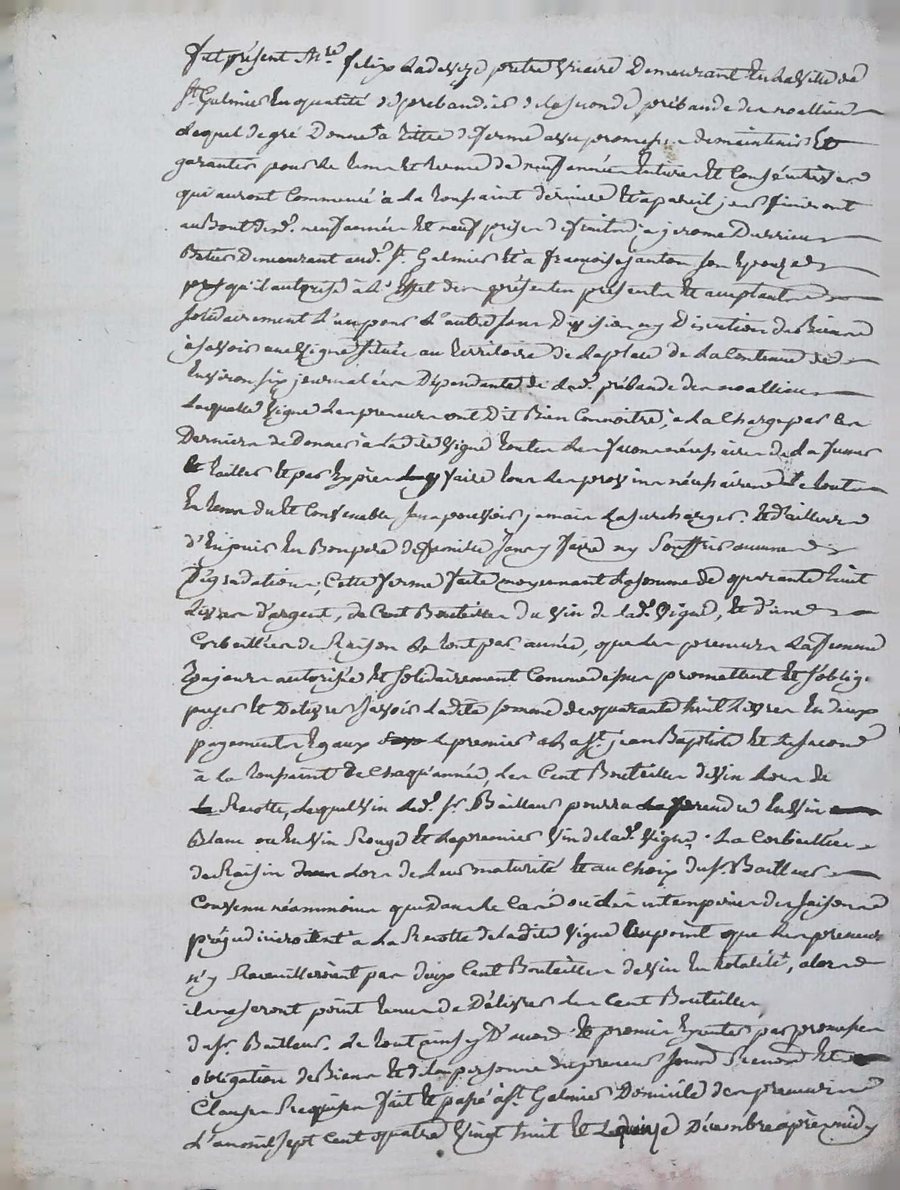 fut présent Mre felix Ladevèze pretre vicaire Demeurant En La ville de
St Galmier En qualité de prebandier de la seconde prébande des noallieu
Lequel de gré Donne à titre de ferme avec promesse de maintenir Et
garantir pour Le tems et terme de neuf années Entieres Et Conséqutives
qui auront Commencé à La toussaint derniere Et à pareil jour finiront
au Bout desd. neuf années Et neuf prises de fruits à jerome Durrieu
Demeurant aud. St Galmier Et à françoise janton son Epouze
qu'il autorise à L'Effet des présentes présents Et acceptants
solidairement L'un pour L'autre sans Division ny Discution de Biens
à savoir une vigne située au territoire de Laplace de La Contenue de
Environ six journalées Dépendante de Lad. prébande des noallieu
Laquelle vigne Les preneurs ont Dit Bien Connoitre, à La Charge par Ces
Derniers de Donner à Ladite vigne toutes Les façons nécessaires de La fumer
Et tailler Et par Exprès faire tous Les provins nécessaires Le tout
En tems du Et Convenable sans pouvoir jamais La surcharger. Et d'ailleurs
d'En jouir En Bon pere de famille sans y faire ny Souffrir aucunes
Dégradations; Cette ferme faite moyennant La somme de quarante huit
Livres d'argent, de Cent Bouteilles du vin de lad. vigne, Et d'une
Corbeillée de Raisin Le tout par année, que Les preneurs La femme
toujours autorisée Et solidairement Comme dessus promettent Et s'oblig.
payer Et Delivrer savoir Ladite somme de quarante huit Livres En deux
payements Egaux Le premier à La St jean Baptiste Et Le second
à la toussaint de Chaqu'année, Les Cent Bouteilles de vin Lors de
La Recolte, Lequel vin Led. Sr. Bailleur pourra prendre En vin
Blanc ou En vin Rouge Et Le premier vin de lad. vigne. La Corbeillée
de Raisin Lors de Leur maturité Et au Choix du Sr. Bailleur
Convenu néanmoins que Dans Le Cas où Les intemperies des saisons
préjudicieroient à La Recolte de ladite vigne au point que Les preneurs
n'y Recueilleroient pas deux Cent Bouteilles de vin En totalité, alors
ils ne seront point tenus de Délivrer Les Cent Bouteilles
du Sr. Bailleur. Le tout ainsy D'acord Et promis Executer par promesse
obligation de Biens Et de La personne du preneur soumis Renoncé Et
Clauses Requises fait Et passé à St Galmier Domicile des preneurs
L'an mil sept Cent quatre vingt huit Et Le quinze Décembre après midy